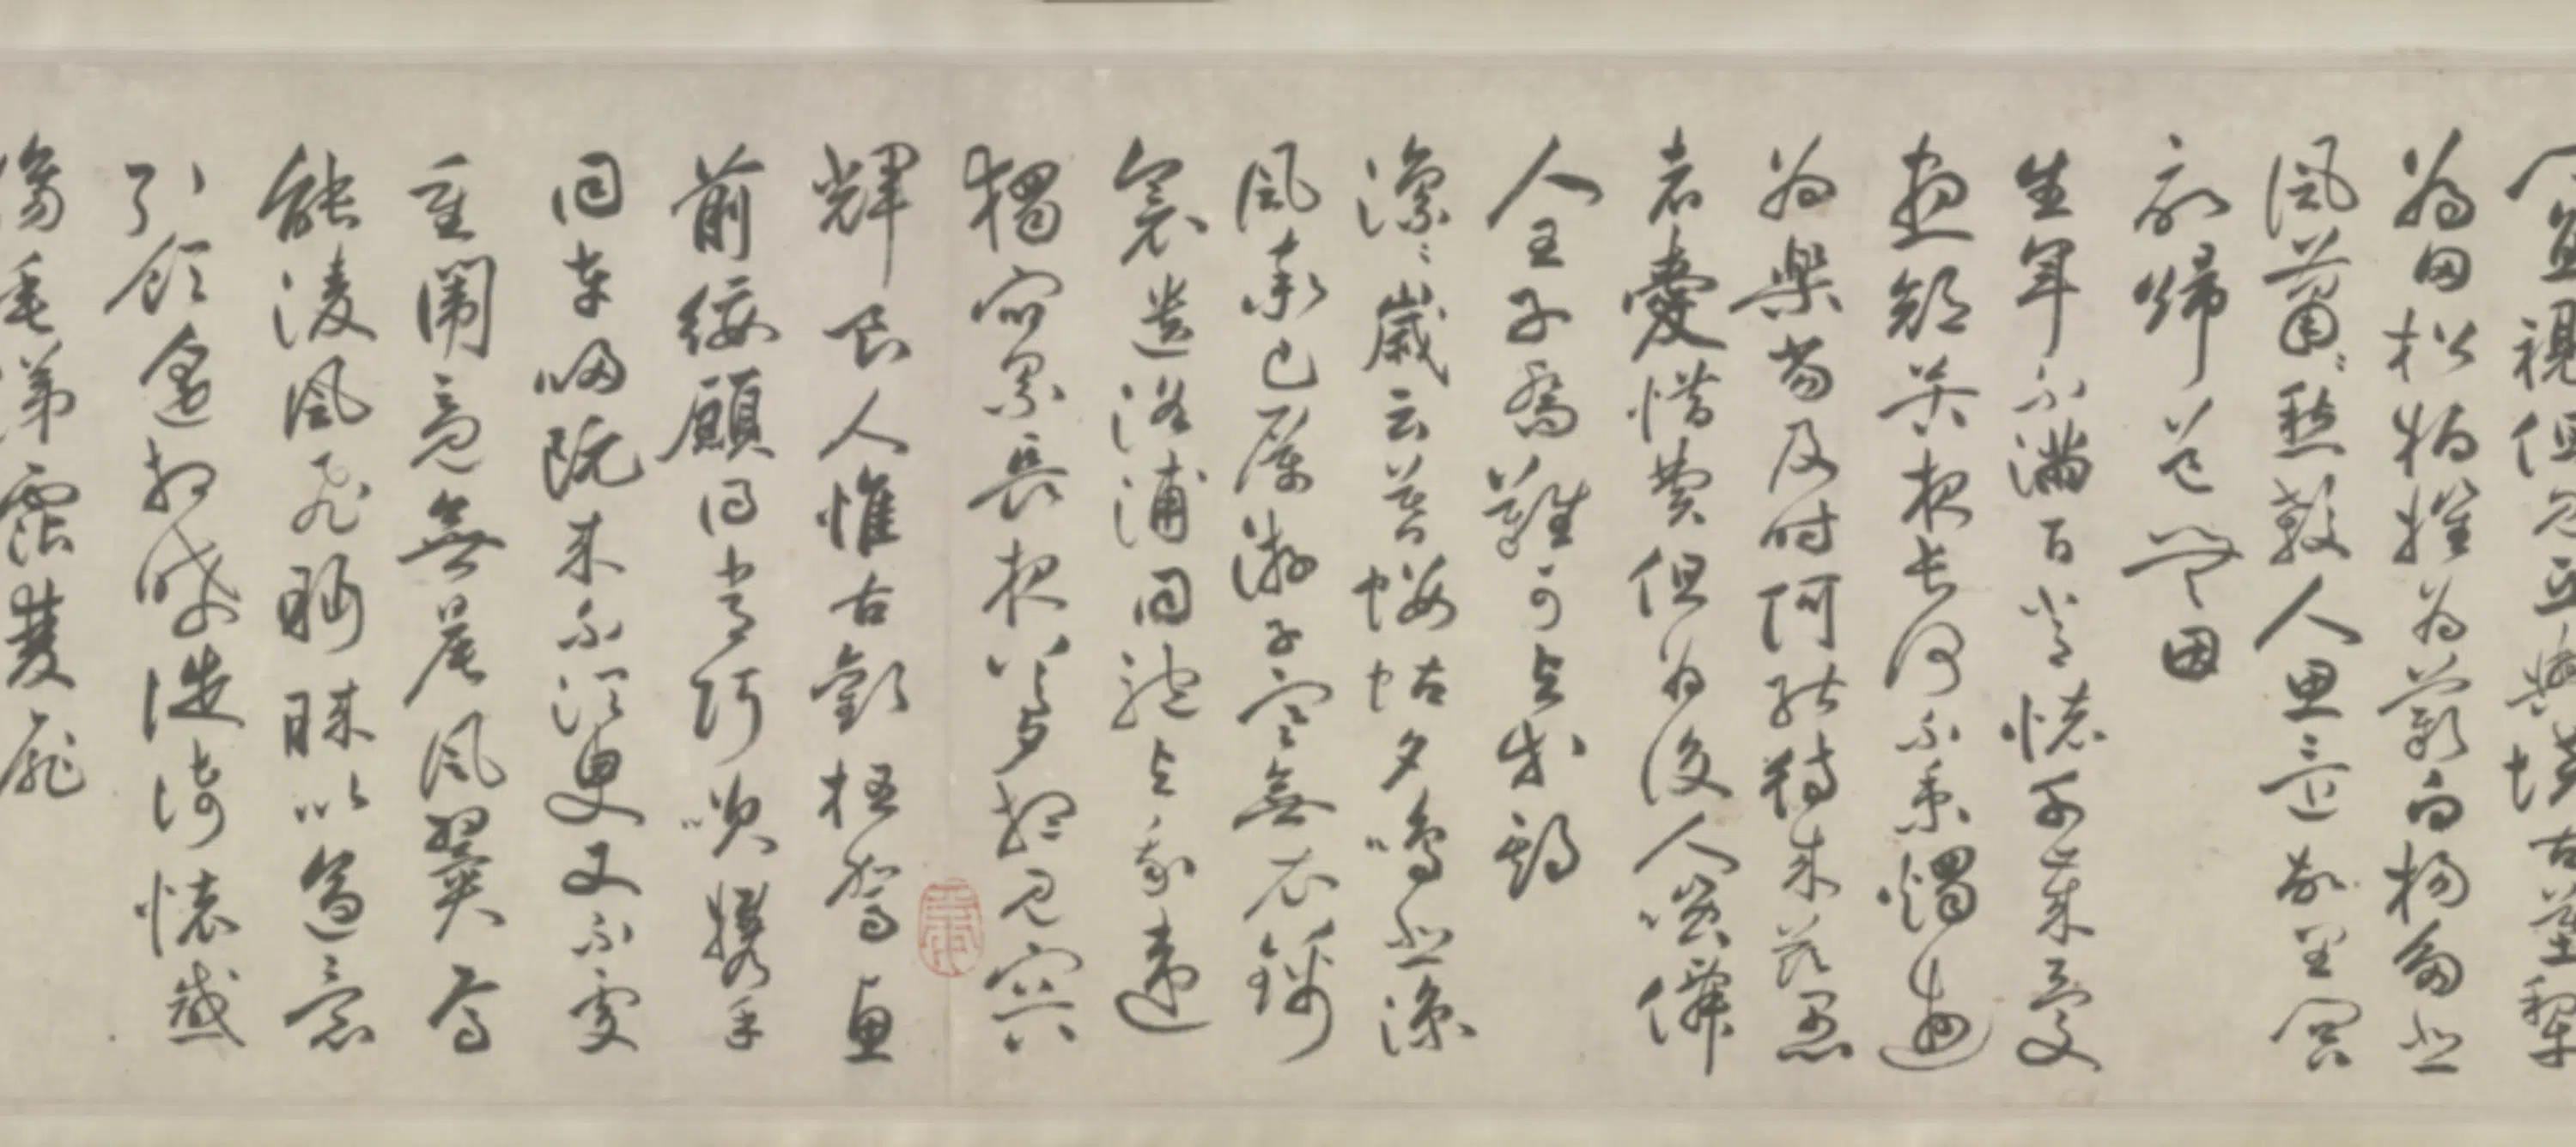 直視但見丘與墳古墓犁
為田松柏摧為薪白楊多悲
風蕭〻愁殺人思還故里閭
欲歸道無因
生年不滿百常懷千歲憂
晝短苦夜長何不秉燭遊
為樂當及時何能待來茲愚
者愛惜費但為後人嗤僊
人王子喬難可與等期
凜〻歲云暮螻蛄夕鳴悲涼
風率已厲遊子寒無衣錦
衾遺洛浦同袍與我違
獨宿累長夜夢想見容
輝良人惟古歡枉駕惠
前綏願得常巧笑攜手
同車歸既來不須臾又不處
重闈亮無晨風翼焉
能淩風飛眄睞以適意
引領遙相睎徙倚懷感
傷垂涕霑雙扉